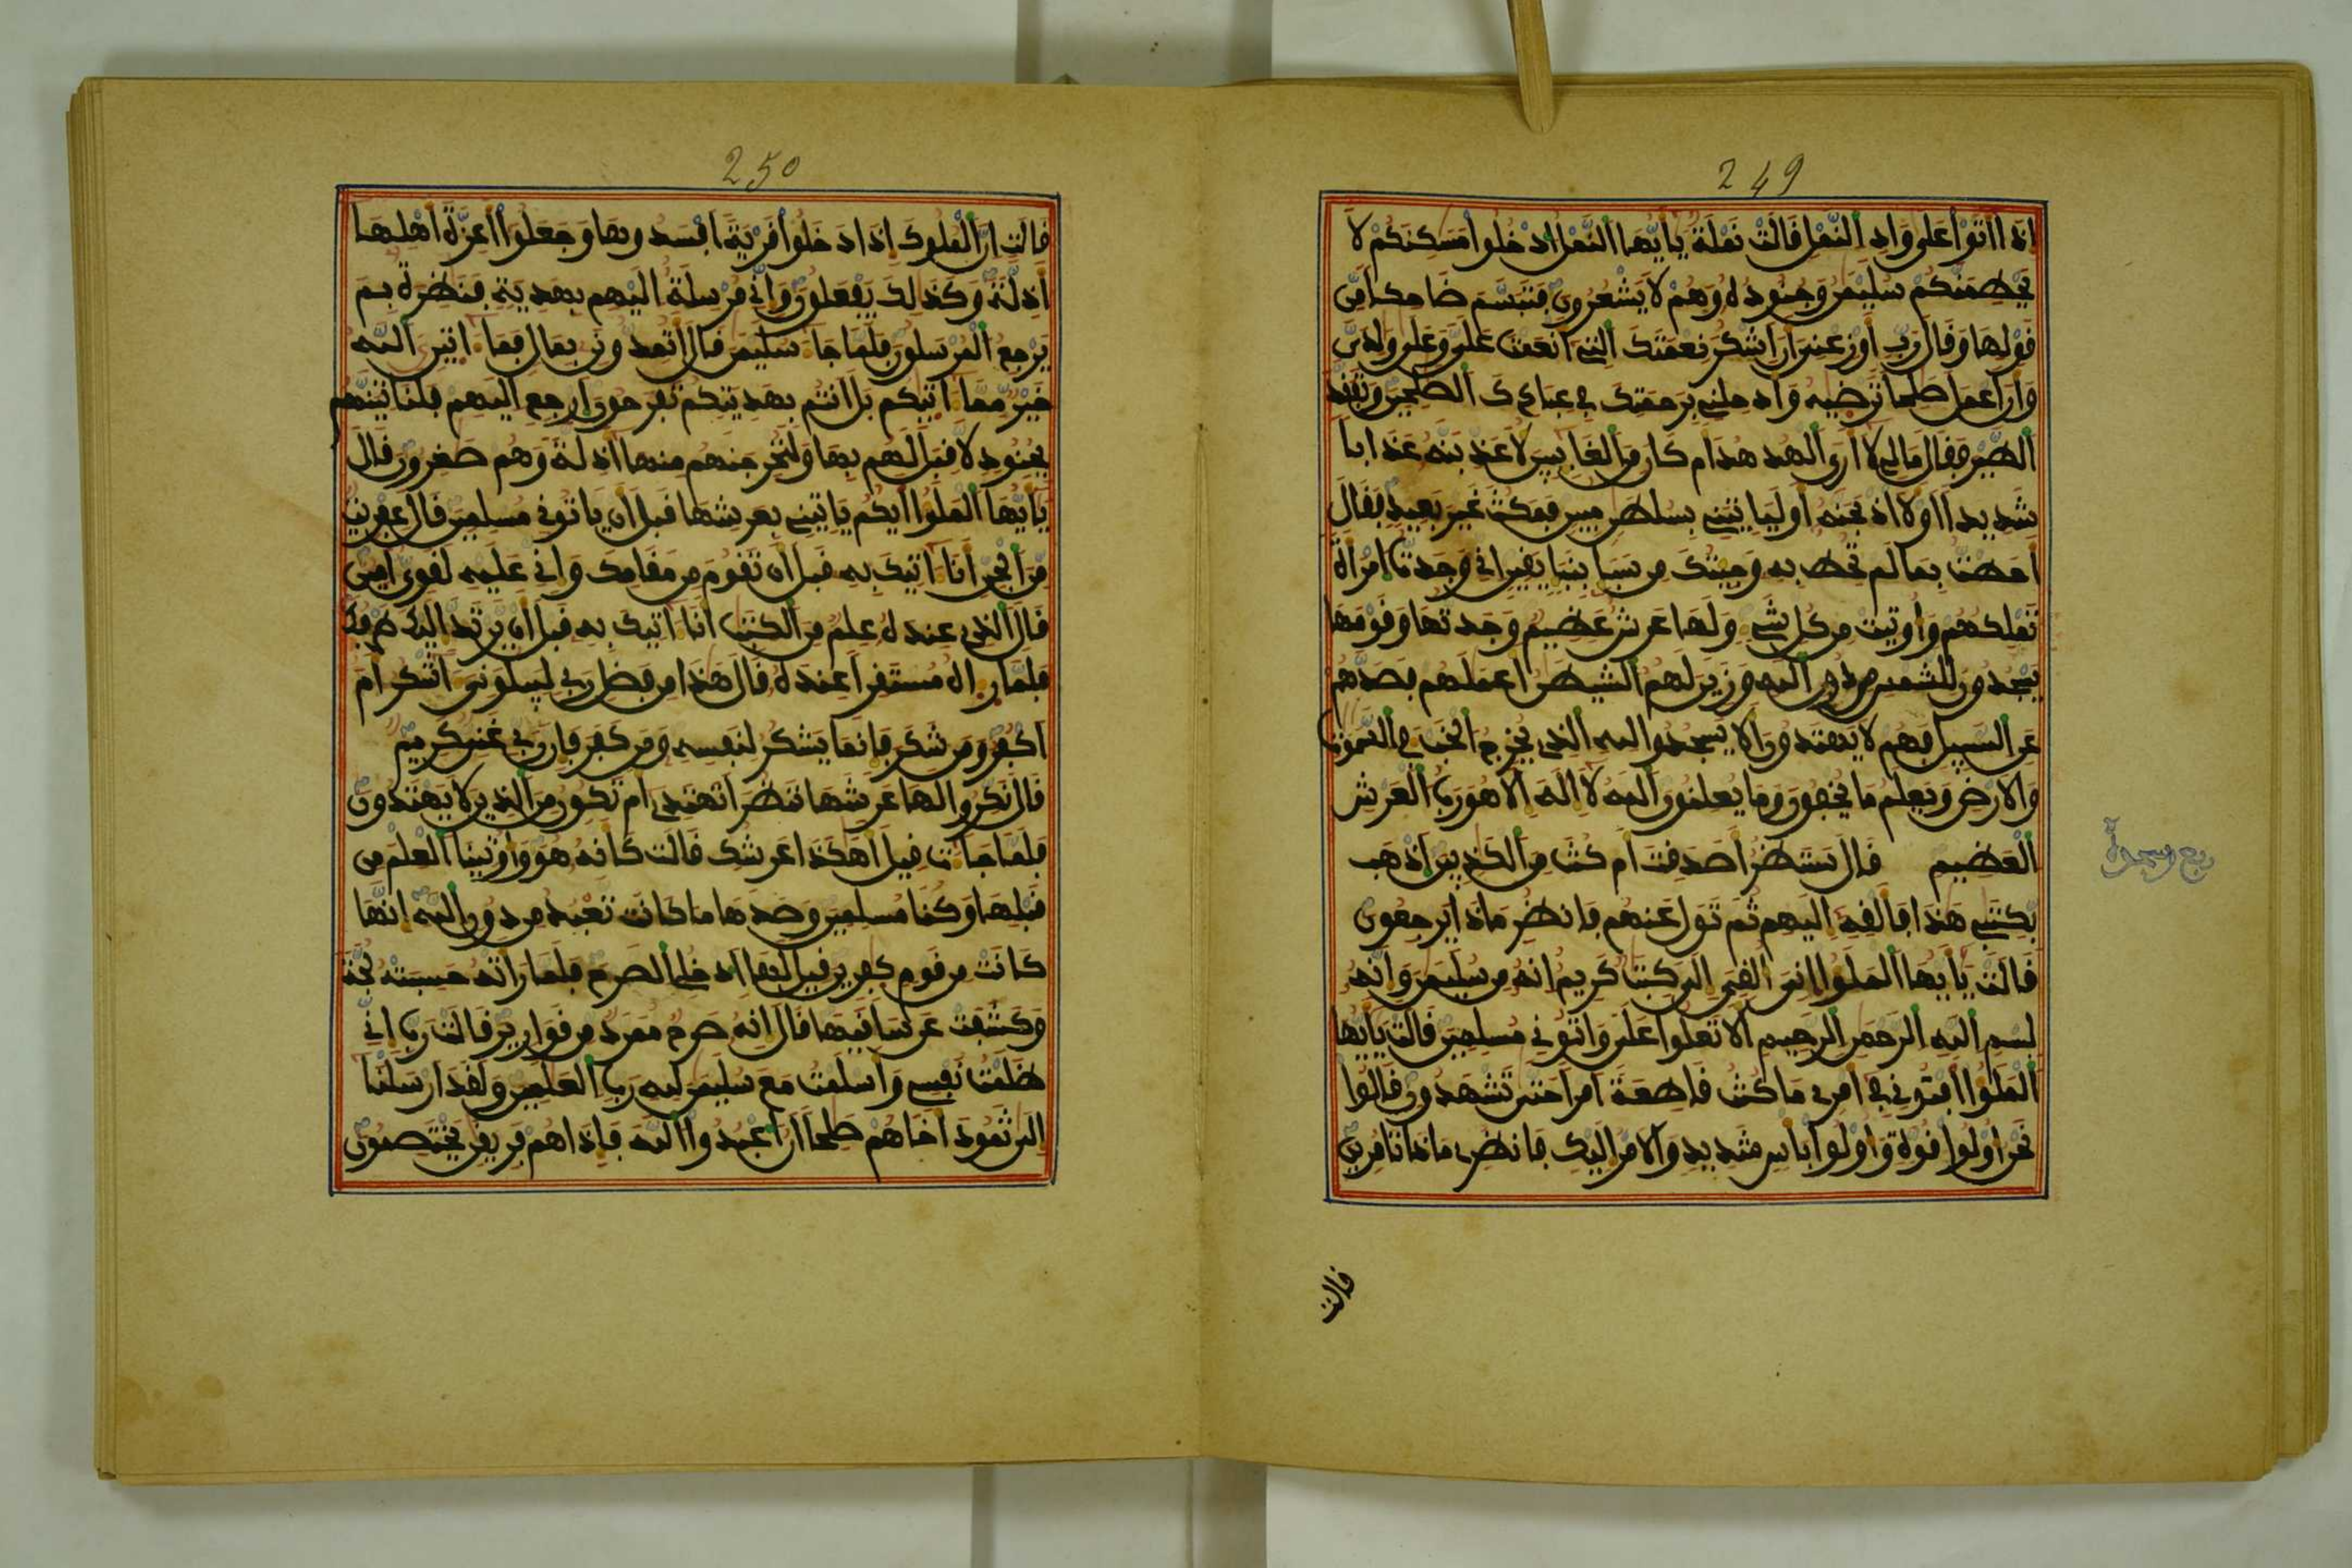 249
اذا اتوا على واد النمل قالت نملة يايها النمل ادخلوا مسكنكم لا
يحطمنكم سليمن وجنوده وهم لا يشعرون فتبسم ضاحكا من
قولها وقال رب اوزعني ان اشكر نعمتك التي انعمت علي وعلى ولدي
وان اعمل صلحا ترضيه وادخلني برحمتك في عبادك الصلحين وتفقد
الطير فقال مالي لا ارى الهدهد ام كان من الغايبين لاعذبنه عذابا
شديدا اولااذبحنه اولياتيني بسلطن مبين فمكث غير بعيد فقال
احطت بما لم تحط به وجيتك من سبا بنبا يقين اني وجدت امراة
تملكهم واوتيت من كل شي ولها عرش عظيم وجدتها وقومها
يسجدون للشمس من دون الله وزين لهم الشيطن اعملهم فصدهم
عن السبيل فهم لا يهتدون الا يسجدوا لله الذي يخرج الخب في السموت
والارض ويعلم ما يخفون وما يعلنون الله لا اله الا هو رب العرش
العظيم قال سننظر اصدقت ام كنت من الكذبين اذهب
بكتبي هذا فالقه اليهم ثم تول عنهم فانظر ماذا يرجعون
قالت يايها الملوا اني القي الي كتب كريم انه من سليمن وانه
بسم الله الرحمن الرحيم الا تعلوا علي واتوني مسلمين قالت يايها
الملوا افتوني في امري ما كنت قاطعة امرا حتى تشهدون قالوا
نحن اولوا قوة واولوا باس شديد والامر اليك فانظري ماذا تامرين
قالت
ربع
250
قالت ان الملوك اذا دخلوا قرية افسدوها وجعلوا اعزة اهلها
اذلة وكذلك يفعلون واني مرسلة اليهم بهدية فنظرة بم
يرجع المرسلون فلما جا سليمن قال اتمدونن بمال فما اتين الله
خير مما اتيكم بل انتم بهديتكم تفرحون ارجع اليهم فلناتينهم
بجنود لا قبل لهم بها ولنخرجنهم منها اذلة وهم صغرون قال
يايها الملوا ايكم ياتيني بعرشها قبل ان ياتوني مسلمين قال عفريت
من الجن انا اتيك به قبل ان تقوم من مقامك واني عليه لقوي امين
قال الذي عنده علم من الكتب انا اتيك به قبل ان يرتد اليك طرفك
فلما راه مستقرا عنده قال هذا من فضل ربي ليبلوني اشكر ام
اكفر ومن شكر فانما يشكر لنفسه ومن كفر فان ربي غني كريم
قال نكروا لها عرشها ننظر اتهتدي ام تكون من الذين لا يهتدون
فلما جات قيل اهكذا عرشك قالت كانه هو واوتينا العلم من
قبلها وكنا مسلمين وصدها ما كانت تعبد من دون الله انها
كانت من قوم كفرين قيل لها ادخلي الصرح فلما راته حسبته لجة
وكشفت عن ساقيها قال انه صرح ممرد من قوارير قالت رب اني
ظلمت نفسي واسلمت مع سليمن لله رب العلمين ولقد ارسلنا
الى ثمود اخاهم صلحا ان اعبدوا الله فاذا هم فريقن يختصمون